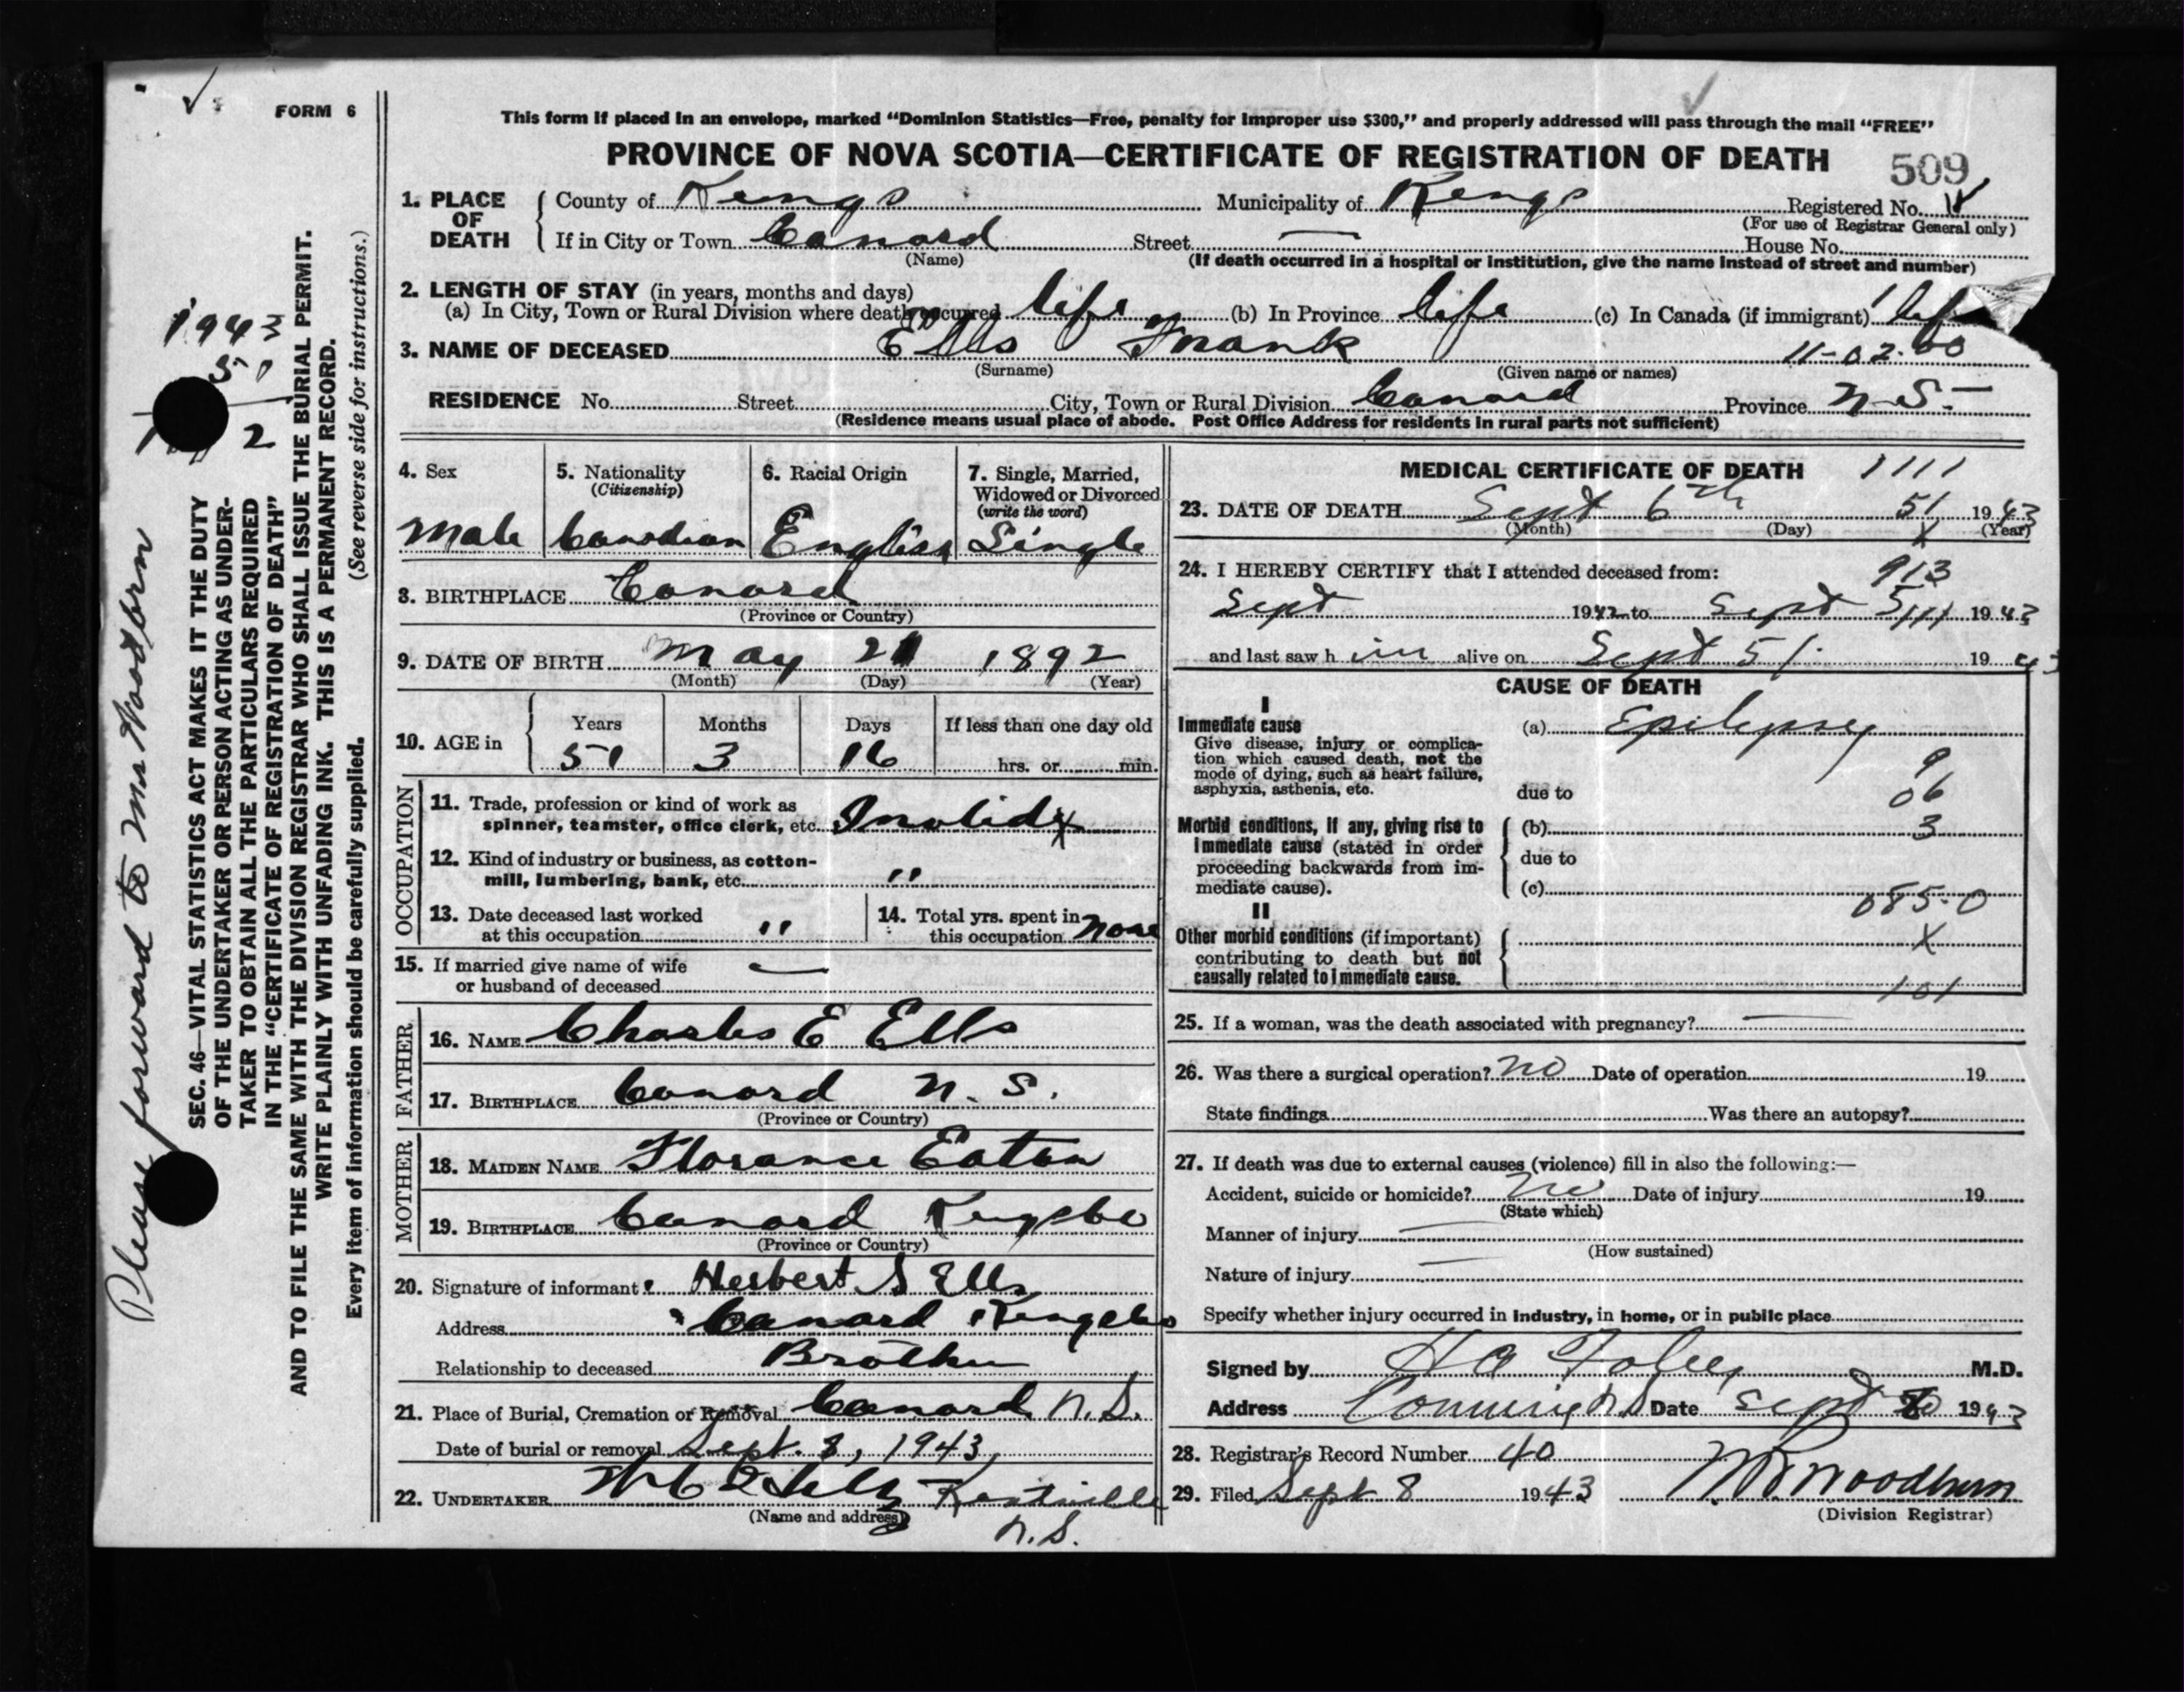 FORM 6
This form if placed in an envelope, marked "Dominion Statistics—Free, penalty for improper use $300," and properly addressed will pass through the mail "FREE"
PROVINCE OF NOVA SCOTIA—CERTIFICATE OF REGISTRATION OF DEATH 509
1. PLACE OF DEATH County of Kings Municipality of Kings Registered No.
(For use of Registrar General only)
If in City or Town Canard Street — House No.
(Name) (If death occurred in a hospital or institution, give the name instead of street and number)
2. LENGTH OF STAY (in years, months and days)
(a) In City, Town or Rural Division where death occurred life (b) In Province life (c) In Canada (if immigrant) life
3. NAME OF DECEASED Ells Frank 11-02-00
(Surname) (Given name or names)
RESIDENCE No. Street City, Town or Rural Division Canard Province N.S.
(Residence means usual place of abode. Post Office Address for residents in rural parts not sufficient)
4. Sex 5. Nationality (Citizenship) 6. Racial Origin 7. Single, Married, Widowed or Divorced (write the word)
Male Canadian English Single
8. BIRTHPLACE Canard
(Province or Country)
9. DATE OF BIRTH May 21 1892
(Month) (Day) (Year)
10. AGE in Years Months Days If less than one day old
51 3 16 hrs. or min.
OCCUPATION
11. Trade, profession or kind of work as
spinner, teamster, office clerk, etc. Invalid x
12. Kind of industry or business, as cotton-
mill, lumbering, bank, etc. "
13. Date deceased last worked
at this occupation "
14. Total yrs. spent in
this occupation none
15. If married give name of wife —
or husband of deceased
FATHER
16. NAME Charles E Ells
17. BIRTHPLACE Canard N. S.
(Province or Country)
MOTHER
18. MAIDEN NAME Florance Eaton
19. BIRTHPLACE Canard Kings Co
(Province or Country)
20. Signature of informant Herbert S Ells
Address Canard Kings Co
Relationship to deceased Brother
21. Place of Burial, Cremation or Removal Canard N.S.
Date of burial or removal Sept. 8, 1943
22. UNDERTAKER Kentville
(Name and address) N.S.
MEDICAL CERTIFICATE OF DEATH 1111
23. DATE OF DEATH Sept 6th 51 1943
(Month) (Day) x (Year)
24. I HEREBY CERTIFY that I attended deceased from: 913
Sept 1942 to Sept 1943
and last saw him alive on Sept 5 1943
CAUSE OF DEATH
I
Immediate cause (a) Epilepsy
Give disease, injury or complica-
tion which caused death, not the
mode of dying, such as heart failure,
asphyxia, asthenia, etc. due to
9
06
3
Morbid conditions, if any, giving rise to (b)
immediate cause (stated in order due to
proceeding backwards from im-
mediate cause). (c) 085.0
II
Other morbid conditions (if important) x
contributing to death but not
causally related to immediate cause. 101
25. If a woman, was the death associated with pregnancy? —
26. Was there a surgical operation? no Date of operation 19
State findings Was there an autopsy?
27. If death was due to external causes (violence) fill in also the following:—
Accident, suicide or homicide? no Date of injury 19
(State which)
Manner of injury —
(How sustained)
Nature of injury —
Specify whether injury occurred in industry, in home, or in public place
Signed by M.D.
Address Canning N S Date Sept 1943
28. Registrar's Record Number 40
29. Filed Sept 8 1943 Woodburn
(Division Registrar)
1943
51
2
Please forward to Mr Woodborn
SEC. 46—VITAL STATISTICS ACT MAKES IT THE DUTY
OF THE UNDERTAKER OR PERSON ACTING AS UNDER-
TAKER TO OBTAIN ALL THE PARTICULARS REQUIRED
IN THE "CERTIFICATE OF REGISTRATION OF DEATH"
AND TO FILE THE SAME WITH THE DIVISION REGISTRAR WHO SHALL ISSUE THE BURIAL PERMIT.
WRITE PLAINLY WITH UNFADING INK. THIS IS A PERMANENT RECORD.
Every item of information should be carefully supplied. (See reverse side for instructions.)